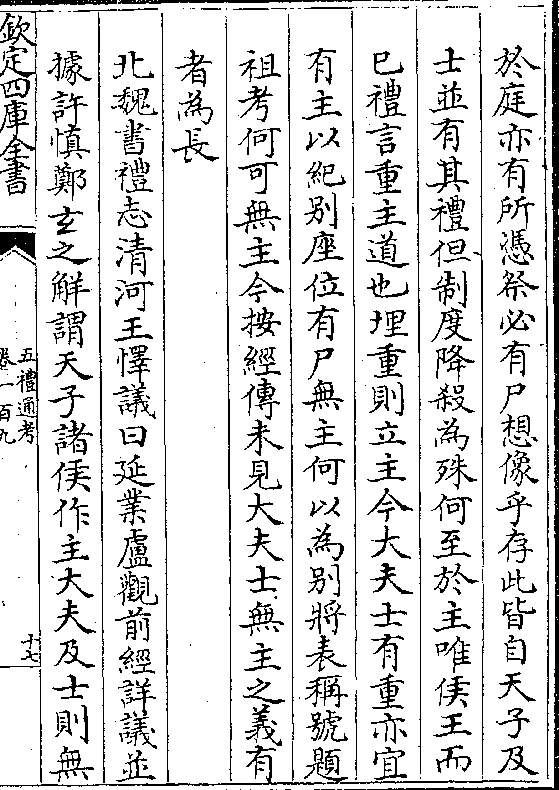 於庭亦有所憑祭必有尸想像乎存此皆自天子及
士並有其禮但制度降殺為殊何至於主唯侯王而
已禮言重主道也埋重則立主今大夫士有重亦宜
有主以紀别座位有尸無主何以為别將表稱號題
祖考何可無主今按經傳未見大夫士無主之義有
者為長
北魏書禮志清河王懌議曰延業盧觀前經詳議並
據許慎鄭玄之解謂天子諸侯作主大夫及士則無
欽定四庫全書
五禮通考
卷一百九
十七